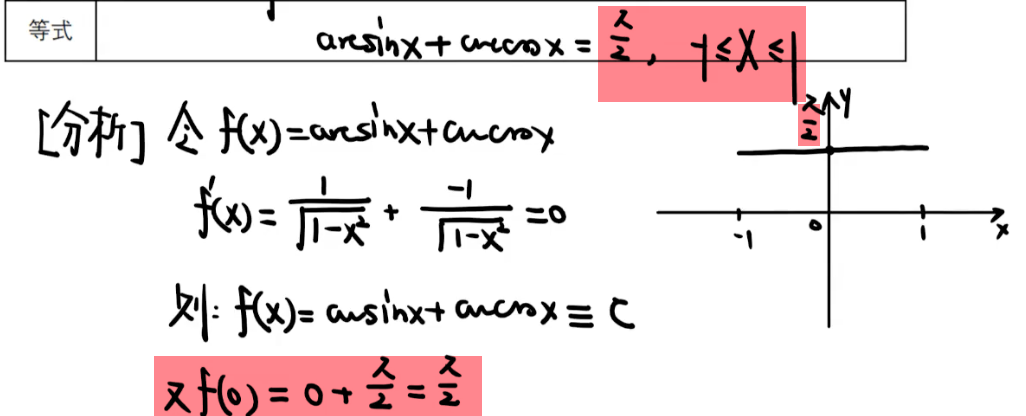 等式
arcsinx + arccosx = π/2, -1 ≤ x ≤ 1
[分析] 令 f(x) = arcsinx + arccosx
f'(x) = 1/√(1-x²) + -1/√(1-x²) = 0
则: f(x) = arcsinx + arccosx ≡ C
又 f(0) = 0 + π/2 = π/2
π/2 y
-1 0 1 x